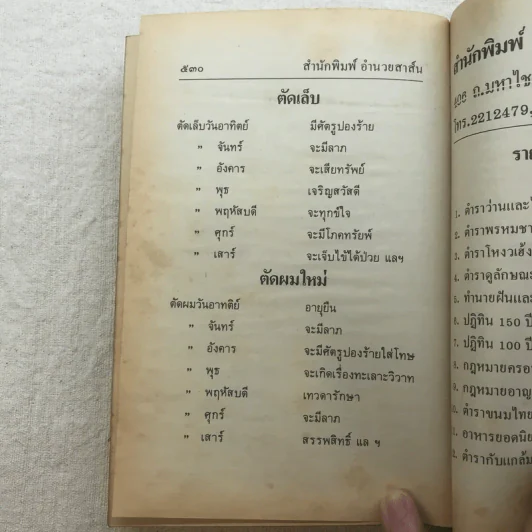 ๕๓๐ สำนักพิมพ์ อำนวยสาส์น
ตัดเล็บ
ตัดเล็บวันอาทิตย์ มีศัตรูปองร้าย
" จันทร์ จะมีลาภ
" อังคาร จะเสียทรัพย์
" พุธ เจริญสวัสดี
" พฤหัสบดี จะทุกข์ใจ
" ศุกร์ จะมีโภคทรัยพ์
" เสาร์ จะเจ็บไข้ได้ป่วย แลฯ
ตัดผมใหม่
ตัดผมวันอาทตีย์ อายุยืน
" จันทร์ จะมีลาภ
" อังคาร จะมีศัตรูปองร้ายใส่โทษ
" พุธ จะเกิดเรื่องทะเลาะวิวาท
" พฤหัสบดี เทวดารักษา
" ศุกร์ จะมีลาภ
" เสาร์ สรรพสิทธิ์ แล ฯ
สำนักพิมพ์
ถ.มหาไช
โทร.2212479,
ราย
1. ตำราว่านและ
2. ตำราพรหมชา
3. ตำราโหงวเฮ้ง
4. ตำราดูลักษณะ
5. ทำนายฝันแล
6. ปฏิทิน 150 ปี
7. ปฏิทิน 100 ปี
8. กฎหมายครอ
9. กฎหมายอาญ
ตำราขนมไทย
อาหารยอดนิย
ตำรากับแกล้ม